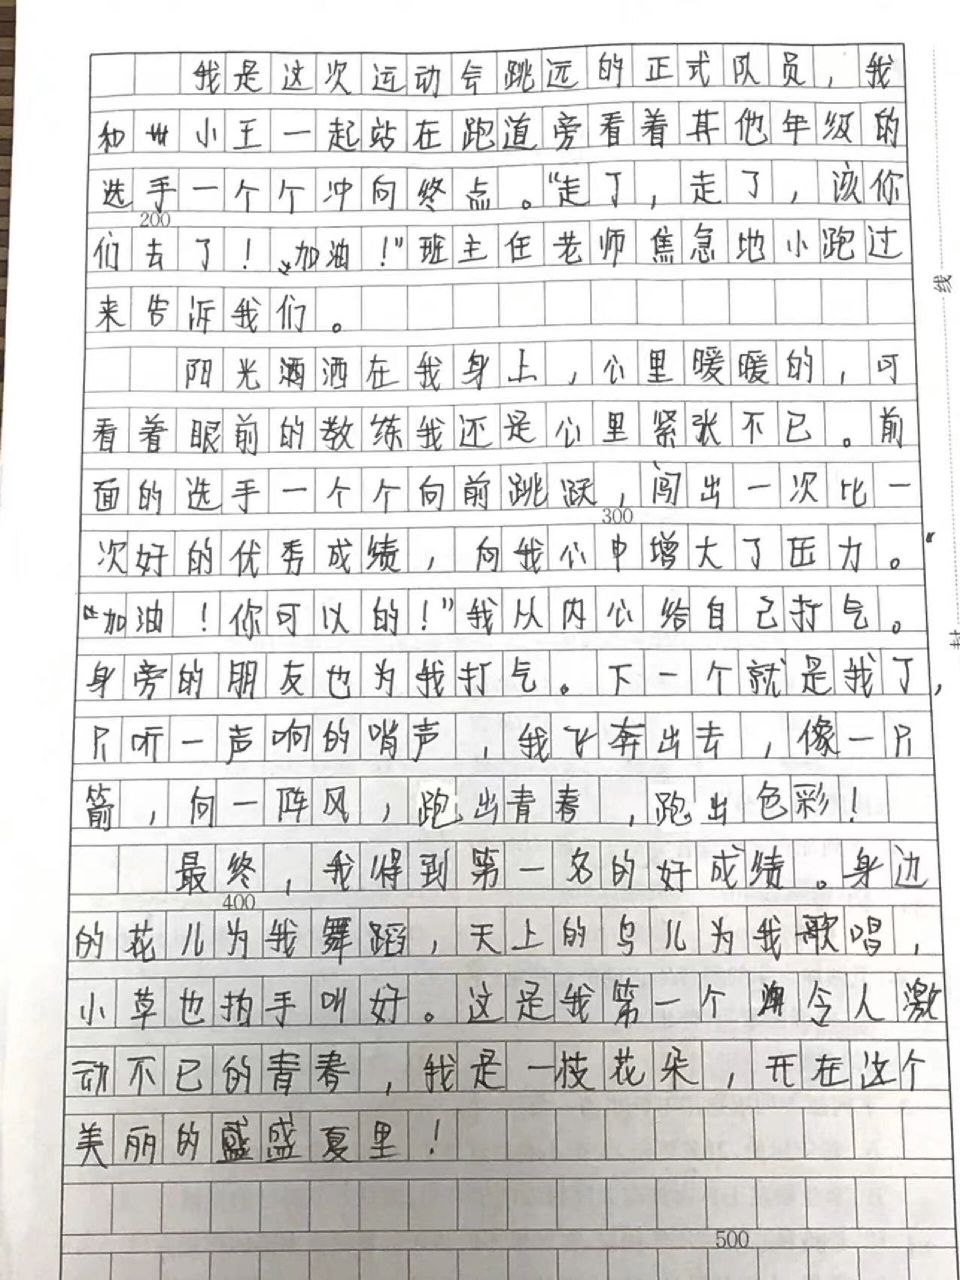 我是这次运动会跳远的正式队员，我
和小王一起站在跑道旁看着其他年级的
选手一个个冲向终点。“走了，走了，该你
200
们去了！“加油！”班主任老师焦急地小跑过
来告诉我们。
阳光洒洒在我身上，心里暖暖的，可
看着眼前的教练我还是心里紧张不已。前
面的选手一个个向前跳跃，闯出一次比一
300
次好的优秀成绩，向我心中增大了压力。“
“加油！你可以的！”我从内心给自己打气。
身旁的朋友也为我打气。下一个就是我了，
只听一声响的哨声，我飞奔出去，像一只
箭，向一阵风，跑出青春，跑出色彩！
最终，我得到第一名的好成绩。身边
400
的花儿为我舞蹈，天上的鸟儿为我歌唱，
小草也拍手叫好。这是我第一个令人激
动不已的青春，我是一枝花朵，开在这个
美丽的盛盛夏里！
500
线
封